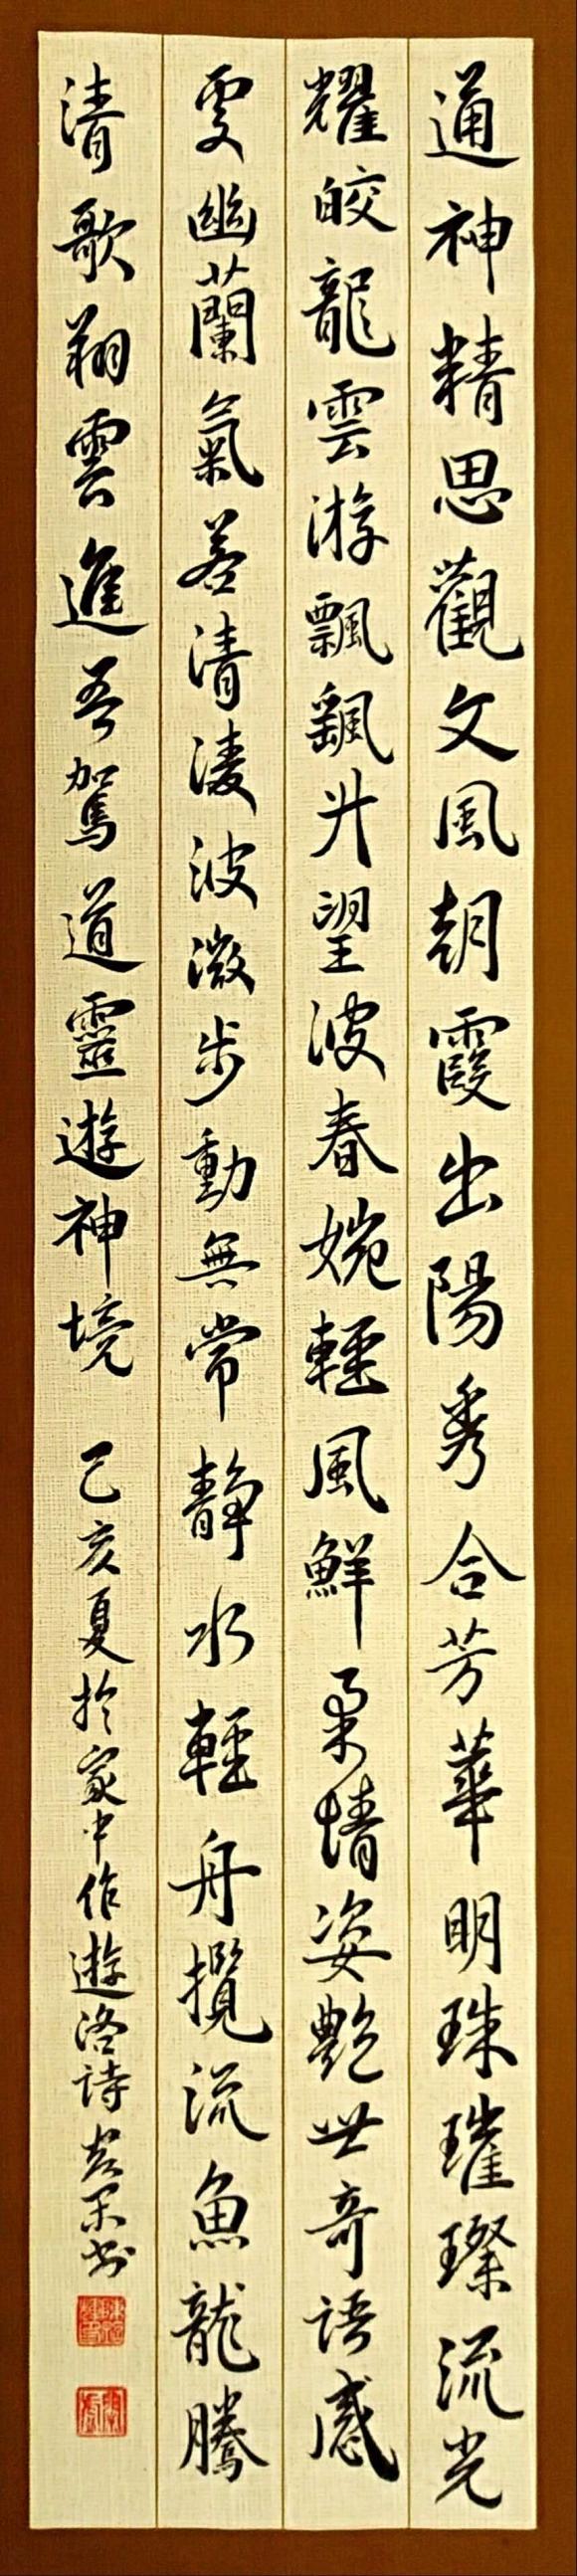 通神精思觀文風朝霞出陽秀合芳華明珠璀璨流光
耀皎龍雲游飄颻升望波春婉輕風鮮柔情姿艷世奇語感
幽蘭氣若清淩波微步動無常靜水輕舟攬流魚龍騰
清歌翔雲進吾駕道靈遊神境 己亥夏於家中作遊洛詩 书